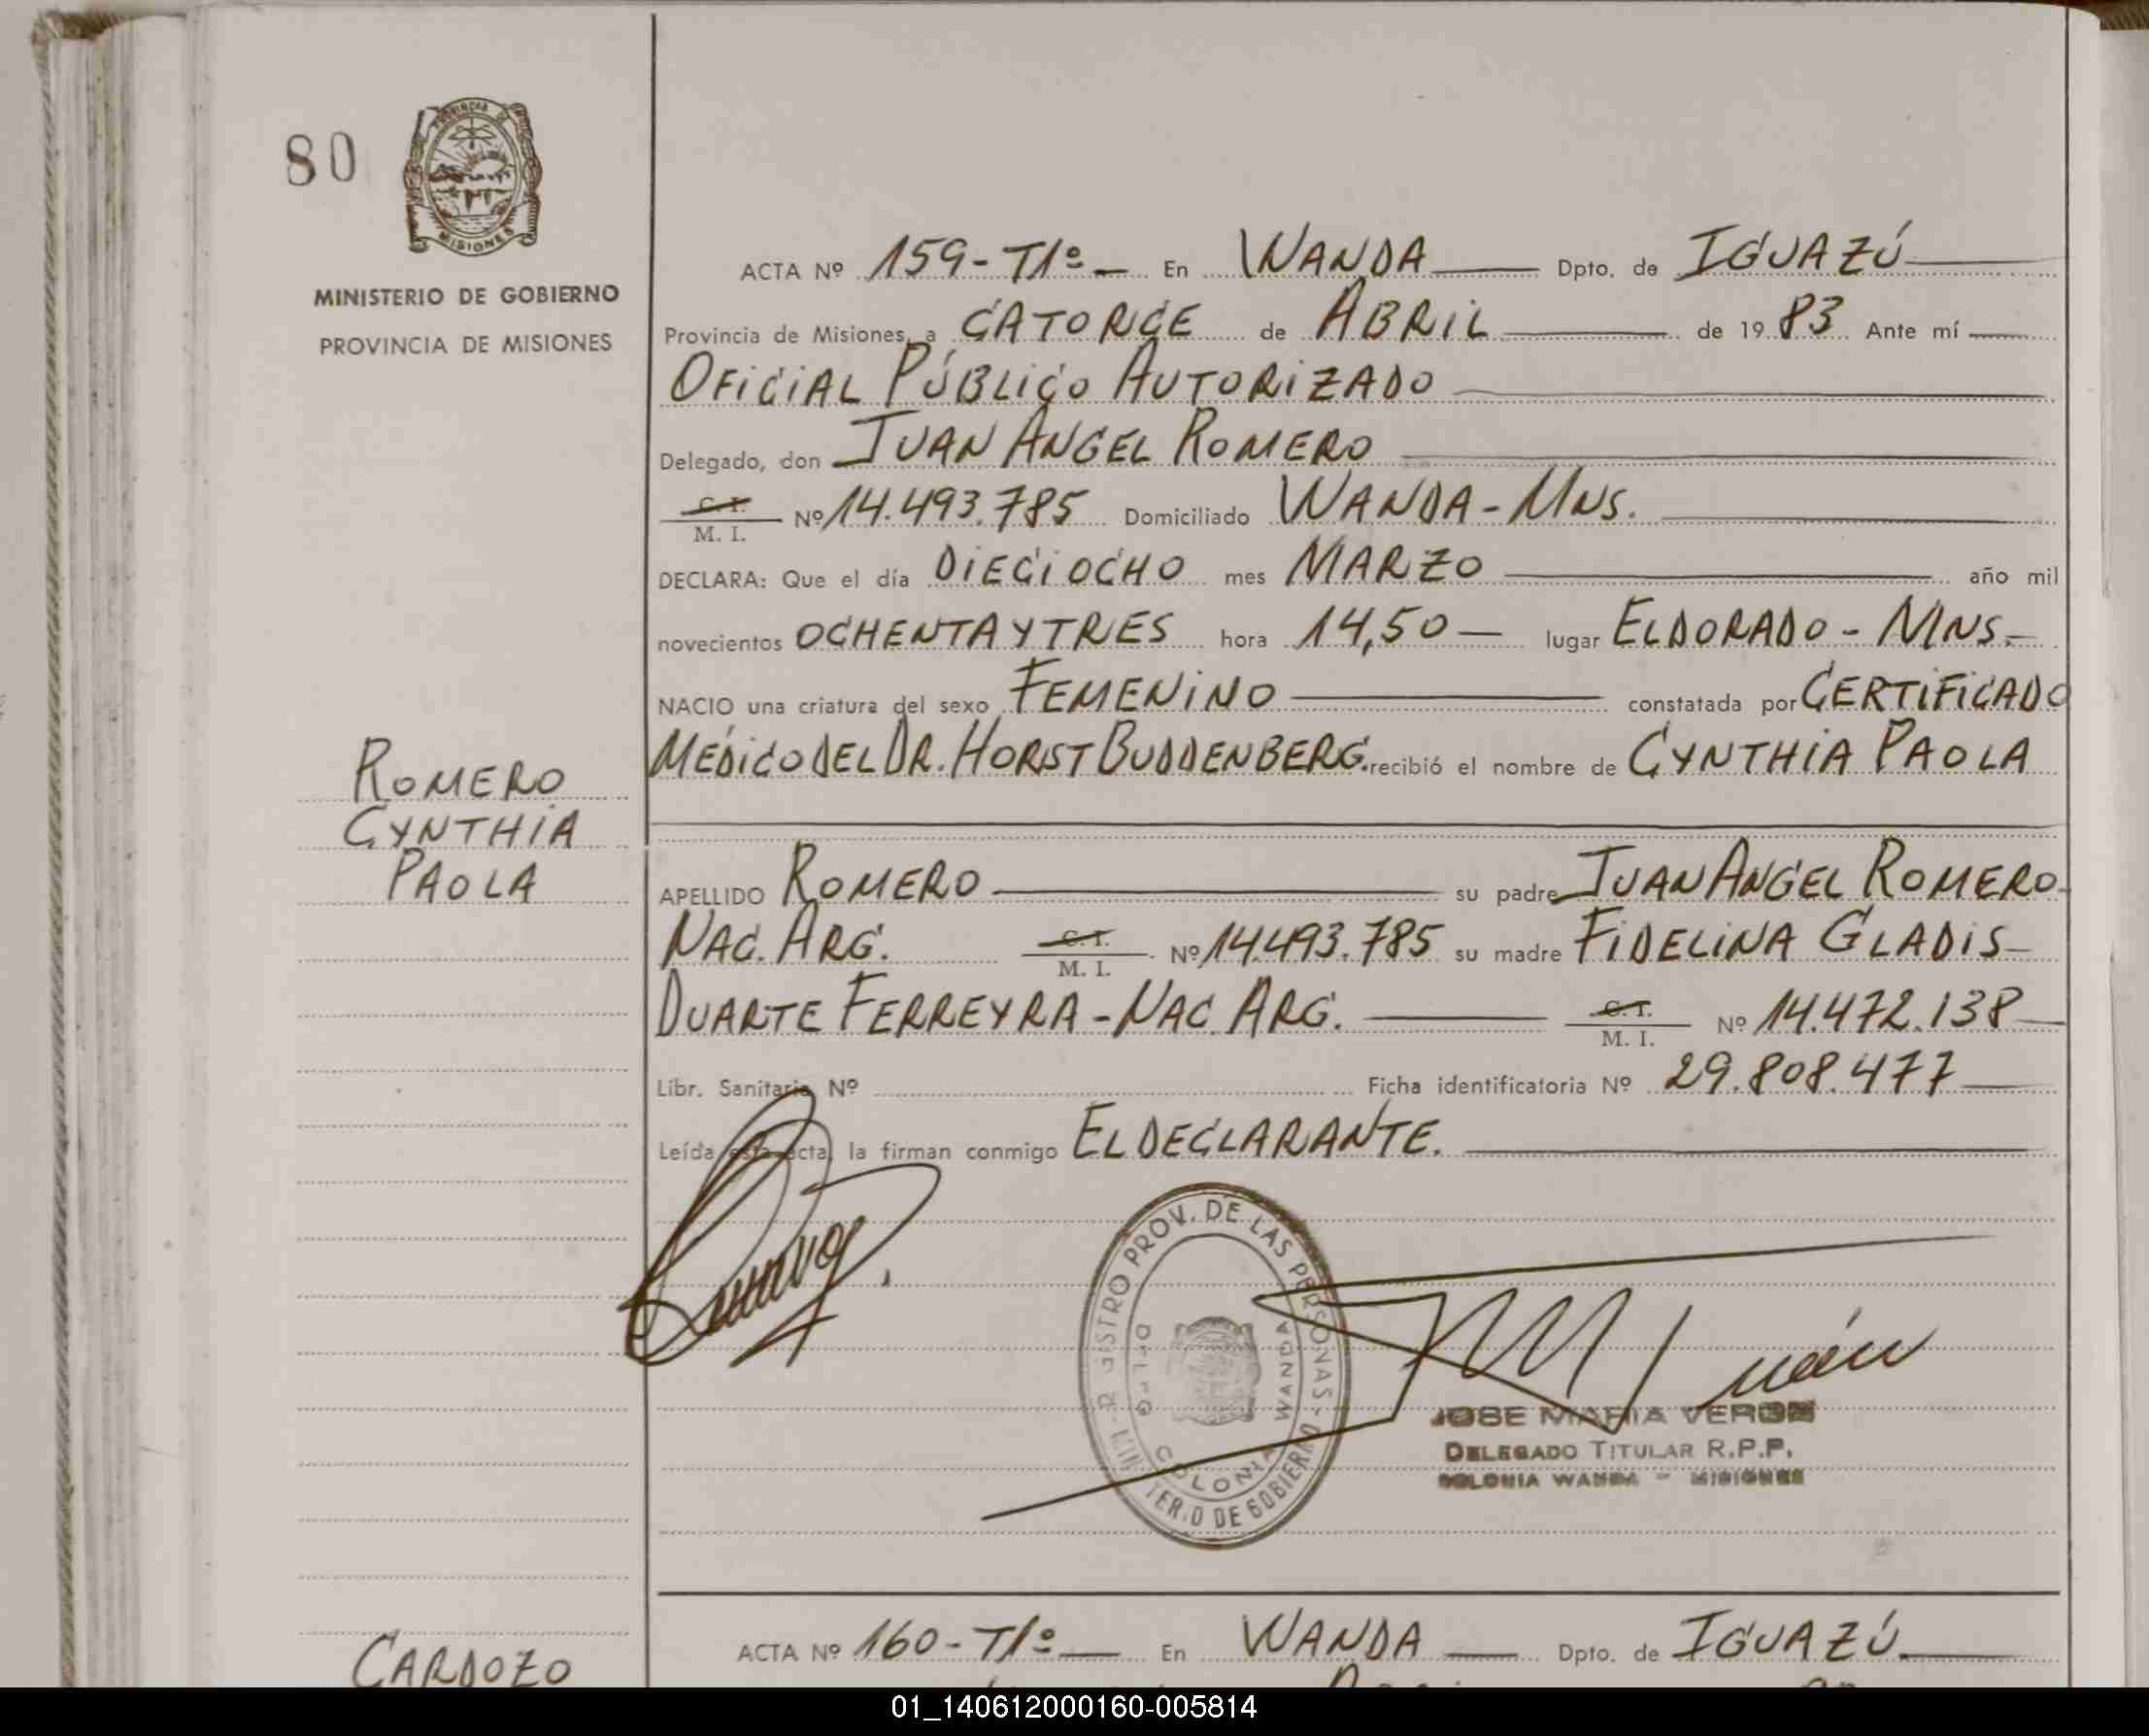 80
PROVINCIA DE
MISIONES
MINISTERIO DE GOBIERNO
PROVINCIA DE MISIONES
ACTA Nº 159-T1º- En WANDA Dpto. de IGUAZÚ
Provincia de Misiones, a CATORCE de ABRIL de 1983 Ante mí
OFICIAL PÚBLICO AUTORIZADO
Delegado, don JUAN ANGEL ROMERO
C. I.
M. I. Nº 14.493.785 Domiciliado WANDA-MNS.
DECLARA: Que el día DIECIOCHO mes MARZO año mil
novecientos OCHENTA Y TRES hora 14,50 lugar ELDORADO - MNS.
NACIO una criatura del sexo FEMENINO constatada por CERTIFICADO
MÉDICO DEL DR. HORST BUDDENBERG. recibió el nombre de CYNTHIA PAOLA
ROMERO
CYNTHIA
PAOLA
APELLIDO ROMERO su padre JUAN ANGEL ROMERO
NAC. ARG. C. I.
M. I. Nº 14.493.785 su madre FIDELINA GLADIS
DUARTE FERREYRA - NAC. ARG. C. I.
M. I. Nº 14.472.138
Libr. Sanitaria Nº Ficha identificatoria Nº 29.808.477
Leída esta acta, la firman conmigo EL DECLARANTE.
REGISTRO PROV. DE LAS PERSONAS - MINISTERIO DE GOBIERNO
DELEG COLONIA WANDA
JOSE MARIA VERON
DELEGADO TITULAR R.P.P.
COLONIA WANDA - MISIONES
ACTA Nº 160-T1º En WANDA Dpto. de IGUAZÚ
CARDOZO
01_140612000160-005814